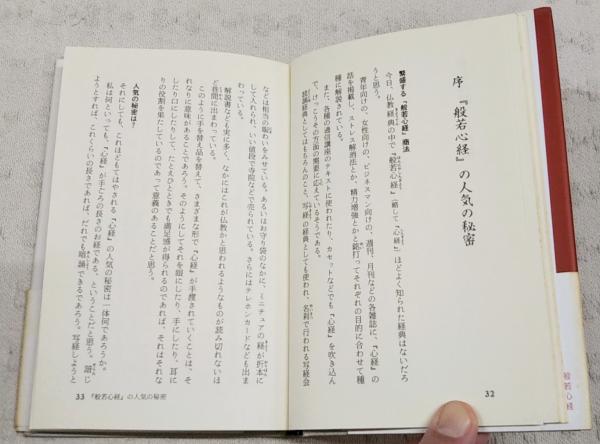 序 『般若心経』の人気の秘密
繁盛する「般若心経」商法
今日、仏教経典の中で『般若心経』（略して『心経』）ほどよく知られた経典はないだろ
うと思う。
青年向けの、女性向けの、ビジネスマン向けの、週刊、月刊などの各雑誌に、『心経』の
話を掲載し、ストレス解消法とか、精力増強とかと銘打ってそれぞれの目的に合わせて種
種に解説されている。
また、各種の通信講座のテキストに使われたり、カセットなどでも『心経』を吹き込ん
で、けっこうその方面の需要に応えているそうである。
読誦経典としてはもちろんのこと、写経の経典としても使われ、名刹で行われる写経会
32
などは相当の賑わいをみせている。あるいはお守り袋のなかに、ミニチュアの経が折本に
して入れられ、いい値段で寺院などで売られている。さらにはテレホンカードなども出ま
わっている。
解説書なども実に多く、なかにはこれが仏教かと思われるようなものが読み切れないほ
ど巷間に出まわっている。
このように手を替え品を替えて、さまざまな形で『心経』が手捜されていくことは、そ
れなりに意味があることであろう。そのようにしてそれを眼にしたり、手にしたり、耳に
したり口にしたりして、たとえひとときでも満足感が得られるのであれば、それはそれな
りの役割を果たしているのであって意義のあることだと思う。
人気の秘密は？
それにしても、これほどもてはやされる『心経』の人気の秘密は一体何であろうか。
私は何といっても、『心経』が手ごろの長さのお経である、ということだと思う。誦じ
ようとすれば、これくらいの長さであれば、だれでも暗誦できるであろう。写経しようと
33 『般若心経』の人気の秘密
般若心経